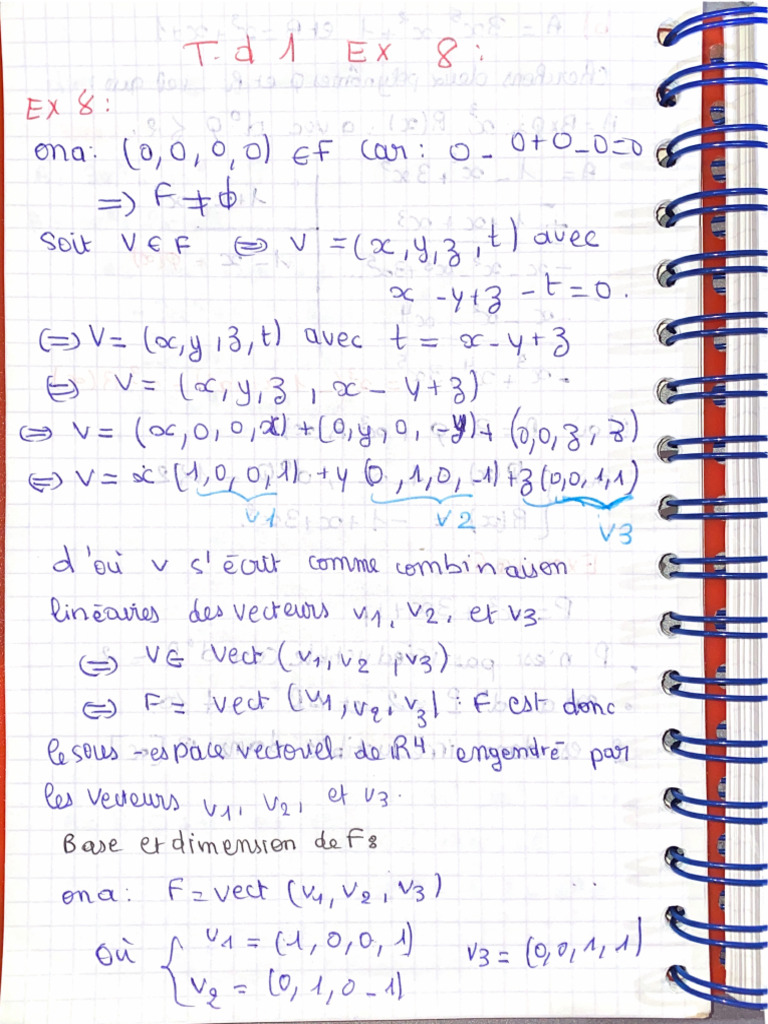 T.d 1 Ex 8 :
Ex 8 :
ona: (0,0,0,0) ∈F Car: 0 - 0+0-0=0
=> F ≠ ∅
Soit V ∈ F <=> V = (x,y,z,t) avec
x -y+z -t=0.
<=> V= (x,y,z,t) avec t = x-y+z
<=> V= (x,y,z, x-y+z)
<=> V= (x,0,0,x)+(0,y,0,-y)+ (0,0,z,z)
<=> V= x(1,0,0,1)+y(0,1,0,-1)+z(0,0,1,1)
v1 v2 v3
d'où v s'écrit comme combinaison
linéaires des vecteurs v1, v2, et v3.
<=> V∈ Vect (v1,v2,v3)
<=> F= Vect (v1,v2,v3) : F est donc
le sous-espace vectoriel de R4 engendré par
les vecteurs v1, v2, et v3.
Base et dimension de F :
ona: F=Vect (v1,v2,v3)
Où { v1 = (1,0,0,1) v3=(0,0,1,1)
v2 = (0,1,0-1)